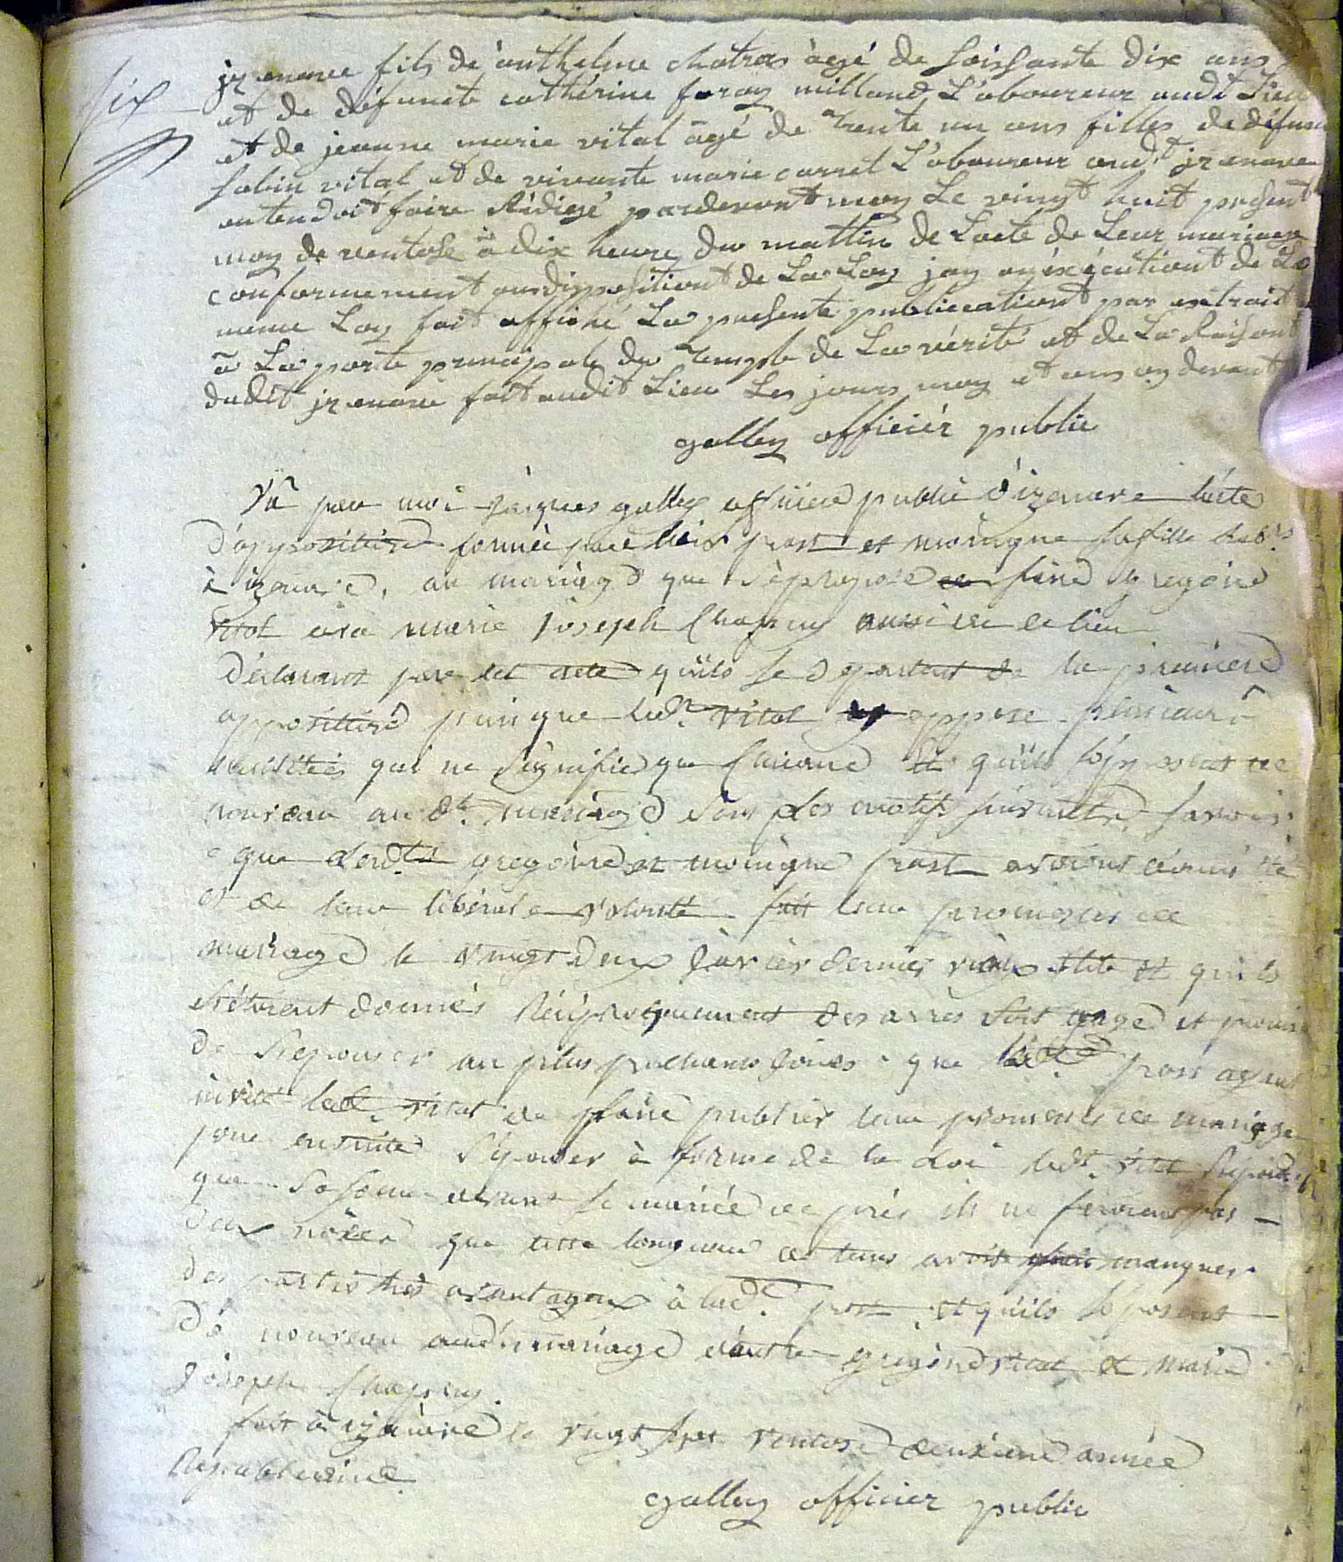 six
jzenave fils de anthelme chatras àgé de soissante dix ans
et de défuncte cathérine feray milland L'aboureur audt Lieu
et de jeanne marie vital agé de trente un ans filles de défunt
sabin vital et de vivante marie carret L'aboureur audt jzenave
entendoit faire Rédigé pardevant moy Le vingt huit present
moy de ventose à dix heure du mattin de Lacte de Leur mariage
conformement aux disposition de La Loy jay en éxécution de La
meme Loy fait affiché La presente publication par extrait
à La porte principale du temple de La vérité et de La Raison
dudit jzenave fait audit Lieu Les jours moy et ans cy devant
galley officiér public
Vû par moi jacques galley officier public d'izenave lacte
d'opposition formée par prost et monique sa fille
à izenave, au mariage que se propose de faire gregoire
vital avec marie joseph Chapuy aussi de ce lieu
déclarant par cet acte quils se départent de la premiere
opposition puisque ledt vital oppose plusieurs
nullités qui ne signifie que et quils s'opposent de
nouveau audt mariage sous les motifs suivants, savoir
que gregoire et monique prost avoient
et de leur libérale volonté fait leur promesses de
mariage le vingt deux janvier dernier vieux stile et quils
s'étoient donnés Réciproquement des arres et promis
de s'épouser au plus prochains jours que prost ayant
invité ledt vital de faire publier leur promesses de mariage
pour ensuite s'épouser à forme de la loi ledt vital
que sa soeur devant se mariée de près ils ne feroient pas
deux nôces que cette longueur de tems avoit manquer
des partis très avantageux à ladt prost et quils s'oposent
de nouveau audt mariage dentre gregoire vital et marie
joseph Chapuy.
fait à izenave le vingt sept ventose deuxieme année
Republicaine.
galley officier public